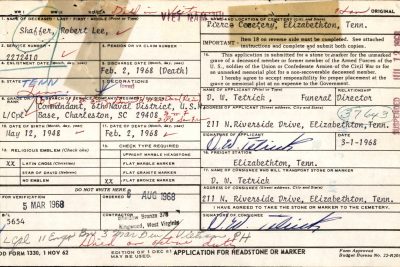 ORIGINAL
NAME OF DECEASED - LAST - FIRST - MIDDLE (Print or Type)
Shaffer, Robert Lee,
NAME AND LOCATION OF CEMETERY (City and State)
Pierce Cemetery, Elizabethton, Tenn.
IMPORTANT - Item 18 on reverse side must be completed. See attached
instructions and complete and submit both copies.
SERVICE NUMBER
PENSION OR VA CLAIM NUMBER
2272410
This application is submitted for a stone or marker for the unmarked
grave of a deceased member or former member of the Armed Forces of the
U. S., soldier of the Union or Confederate Armies of the Civil War or for
a memorial plot for a non-recoverable deceased member.
I hereby agree to accept responsibility for proper placement at the
grave or memorial plot at no expense to the Government.
Feb 2, 1968 (Death)
STATE
TENN
DECORATIONS
D. W. Tetrick, Funeral Director
Commandant, 6th Naval District, U.S.
L/Cpl
Base, Charleston, SC 29408
211 N. Riverside Drive, Elizabethton, Tenn.
37643
SIGNATURE OF APPLICANT
DATE
D. W. Tetrick
3-1-1968
DATE OF BIRTH (Month, Day, Year)
DATE OF DEATH (Month, Day, Year)
May 12, 1948
Feb. 2, 1968
FREIGHT STATION
Elizabethton, Tenn.
RELIGIOUS EMBLEM (Check one)
CHECK TYPE REQUIRED
UPRIGHT MARBLE HEADSTONE
XX
LATIN CROSS (Christian)
FLAT MARBLE MARKER
STAR OF DAVID (Hebrew)
FLAT GRANITE MARKER
NO EMBLEM
XX
FLAT BRONZE MARKER
NAME OF CONSIGNEE WHO WILL TRANSPORT STONE OR MARKER
D. W. Tetrick
DO NOT WRITE HERE
5 MAR 1968
6 AUG 1968
211 N. Riverside Drive, Elizabethton, Tenn.
I HAVE AGREED TO TAKE THE STONE OR MARKER TO THE CEMETERY.
CONTRACTOR
Bronze
Kingwood, West Virginia
5654
SIGNATURE OF CONSIGNEE
D. W. Tetrick
DD FORM 1330, 1 NOV 62
EDITION OF 1 DEC 61
APPLICATION FOR HEADSTONE OR MARKER
Form Approved
Budget Bureau No.